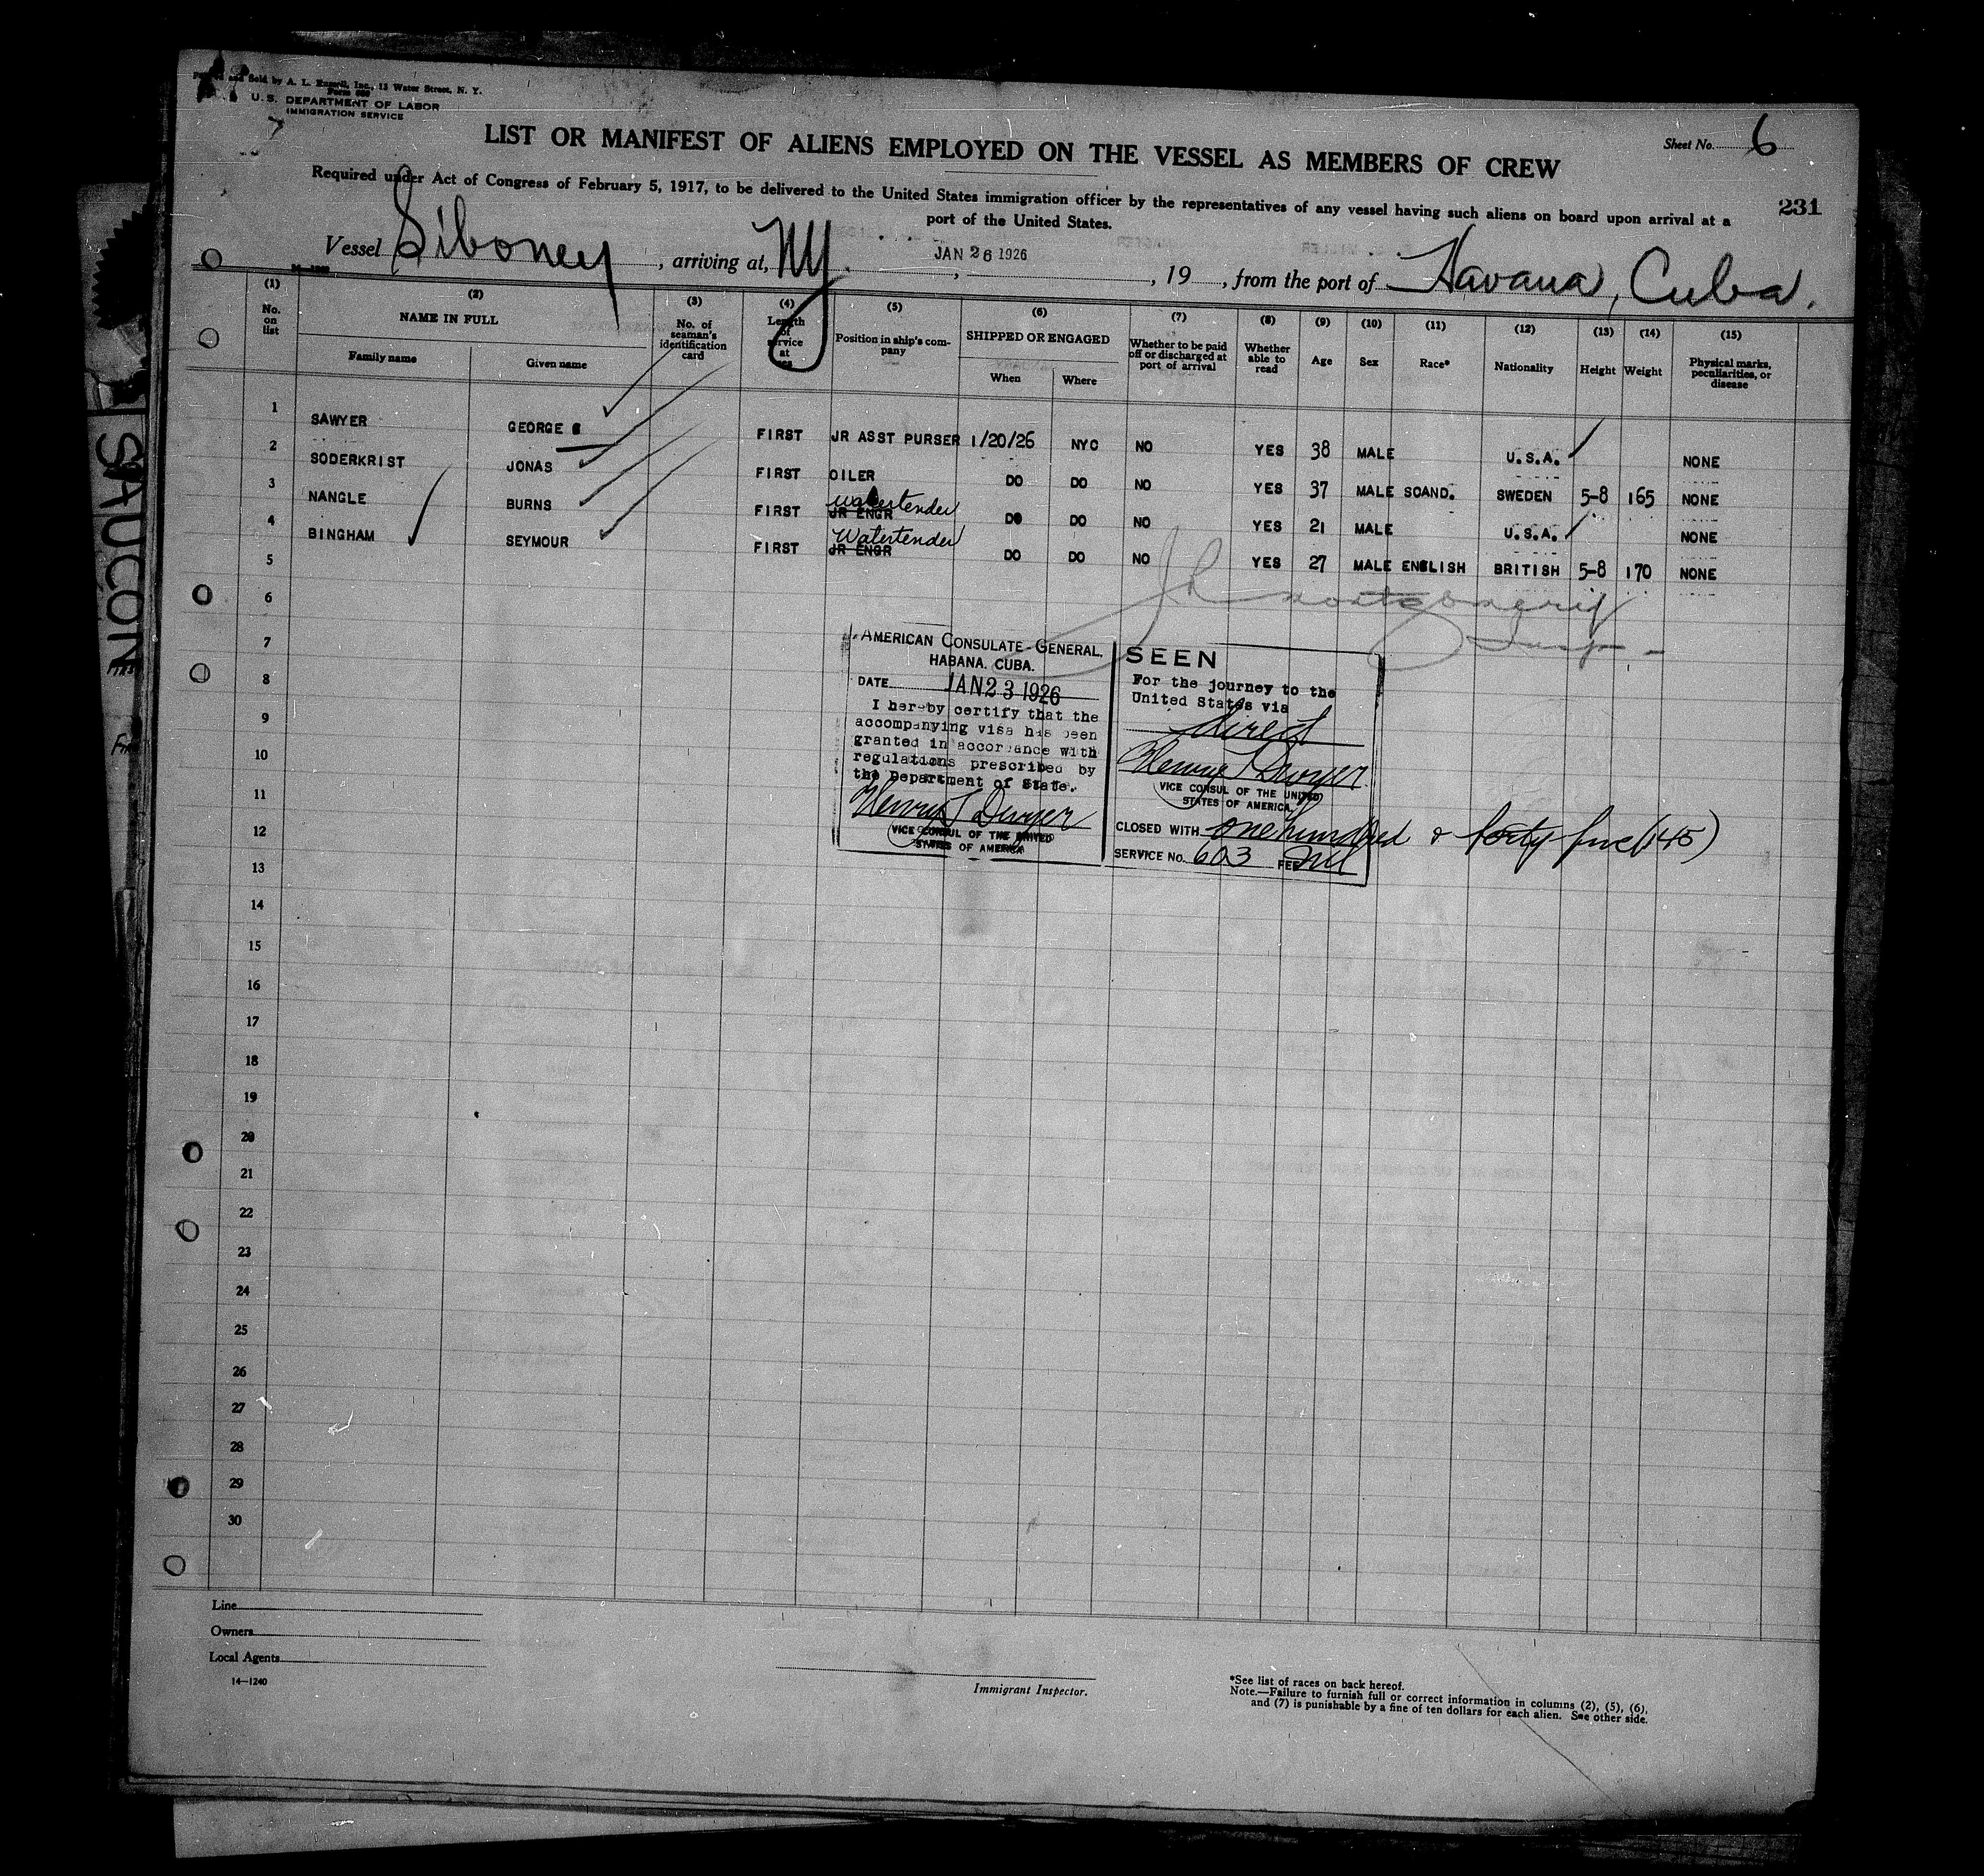 Sold by A. L. Inc., 13 Water Street, N. Y.
U. S. DEPARTMENT OF LABOR
IMMIGRATION SERVICE
LIST OR MANIFEST OF ALIENS EMPLOYED ON THE VESSEL AS MEMBERS OF CREW
Sheet No. 6
Required under Act of Congress of February 5, 1917, to be delivered to the United States immigration officer by the representatives of any vessel having such aliens on board upon arrival at a
port of the United States.
231
Vessel Siboney, arriving at, NY. JAN 26 1926, 19, from the port of Havana, Cuba.
(1) (2) (3) (4) (5) (6) (7) (8) (9) (10) (11) (12) (13) (14) (15)
No. on list NAME IN FULL Family name Given name No. of seaman's identification card Length of service at sea Position in ship's company SHIPPED OR ENGAGED When Where Whether to be paid off or discharged at port of arrival Whether able to read Age Sex Race* Nationality Height Weight Physical marks, peculiarities, or disease
1 SAWYER GEORGE FIRST JR ASST PURSER 1/20/26 NYC NO YES 38 MALE U.S.A. NONE
2 SODERKRIST JONAS FIRST OILER DO DO NO YES 37 MALE SCAND. SWEDEN 5-8 165 NONE
3 NANGLE BURNS FIRST JR ENGR Watertender DO DO NO YES 21 MALE U.S.A. NONE
4 BINGHAM SEYMOUR FIRST JR ENGR Watertender DO DO NO YES 27 MALE ENGLISH BRITISH 5-8 170 NONE
5
6
Montgomery
Insp-
7
8
9
10
11
12
13
AMERICAN CONSULATE-GENERAL,
HABANA, CUBA.
DATE JAN 23 1926
I hereby certify that the
accompanying visa has been
granted in accordance with
regulations prescribed by
the Department of State.
Henry T Dwyer
VICE CONSUL OF THE UNITED
STATES OF AMERICA
SEEN
For the journey to the
United States via
direct
Henry T Dwyer
VICE CONSUL OF THE UNITED
STATES OF AMERICA
CLOSED WITH one hundred & forty five (145)
SERVICE No. 603 FEE Nil
14
15
16
17
18
19
20
21
22
23
24
25
26
27
28
29
30
Line
Owners
Local Agents
14—1240
Immigrant Inspector.
*See list of races on back hereof.
Note.—Failure to furnish full or correct information in columns (2), (5), (6),
and (7) is punishable by a fine of ten dollars for each alien. See other side.
SAUCON